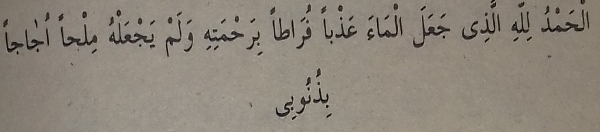 الْحَمْدُ لِلّٰهِ الَّذِى جَعَلَ الْمَاءَ عَذْباً فُرَاطاً بِرَحْمَتِهِ وَلَمْ يَجْعَلْهُ مِلْحاً اُجَاجاً
بِذُنُوبِى